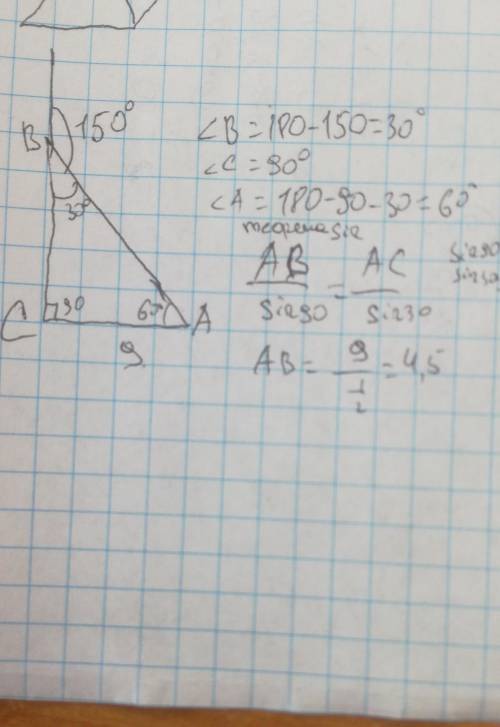 B 150°
30°
C 90 60° A
9
∠B = 180-150=30°
∠C = 90°
∠A = 180-90-30=60°
теорема sin
AB/sin90 = AC/sin30
sin90
sin30
AB = 9/(1/2) = 4,5